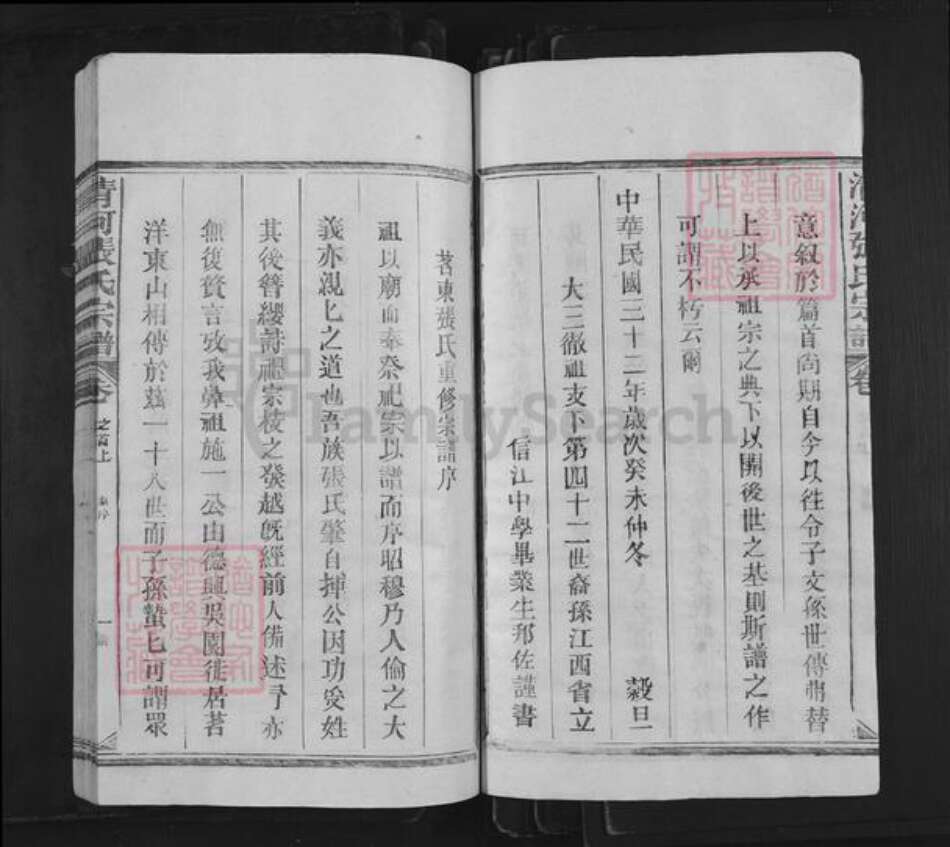 清河張氏宗譜
卷
意叙於篇首尚期自今以往令子文孫世傳弗替
上以承祖宗之典下以開後世之基則斯譜之作
可謂不朽云爾
中華民國三十二年歲次癸未仲冬 穀旦
大三徹祖支下第四十二世裔孫江西省立
信江中學畢業生邦佐謹書
茗東張氏重修宗譜序
祖以廟而奉祭祀宗以譜而序昭穆乃人倫之大
義亦親匕之道也吾族張氏肇自揮公因功受姓
其後簪纓詩禮宗枝之發越旣經前人備述予亦
無復贅言攷我鼻祖施一公由德興吳園徙居茗
洋東山相傳於茲一十八世而子孫蟄匕可謂眾
清河張氏宗譜
卷
之首上
一
FamilySearch